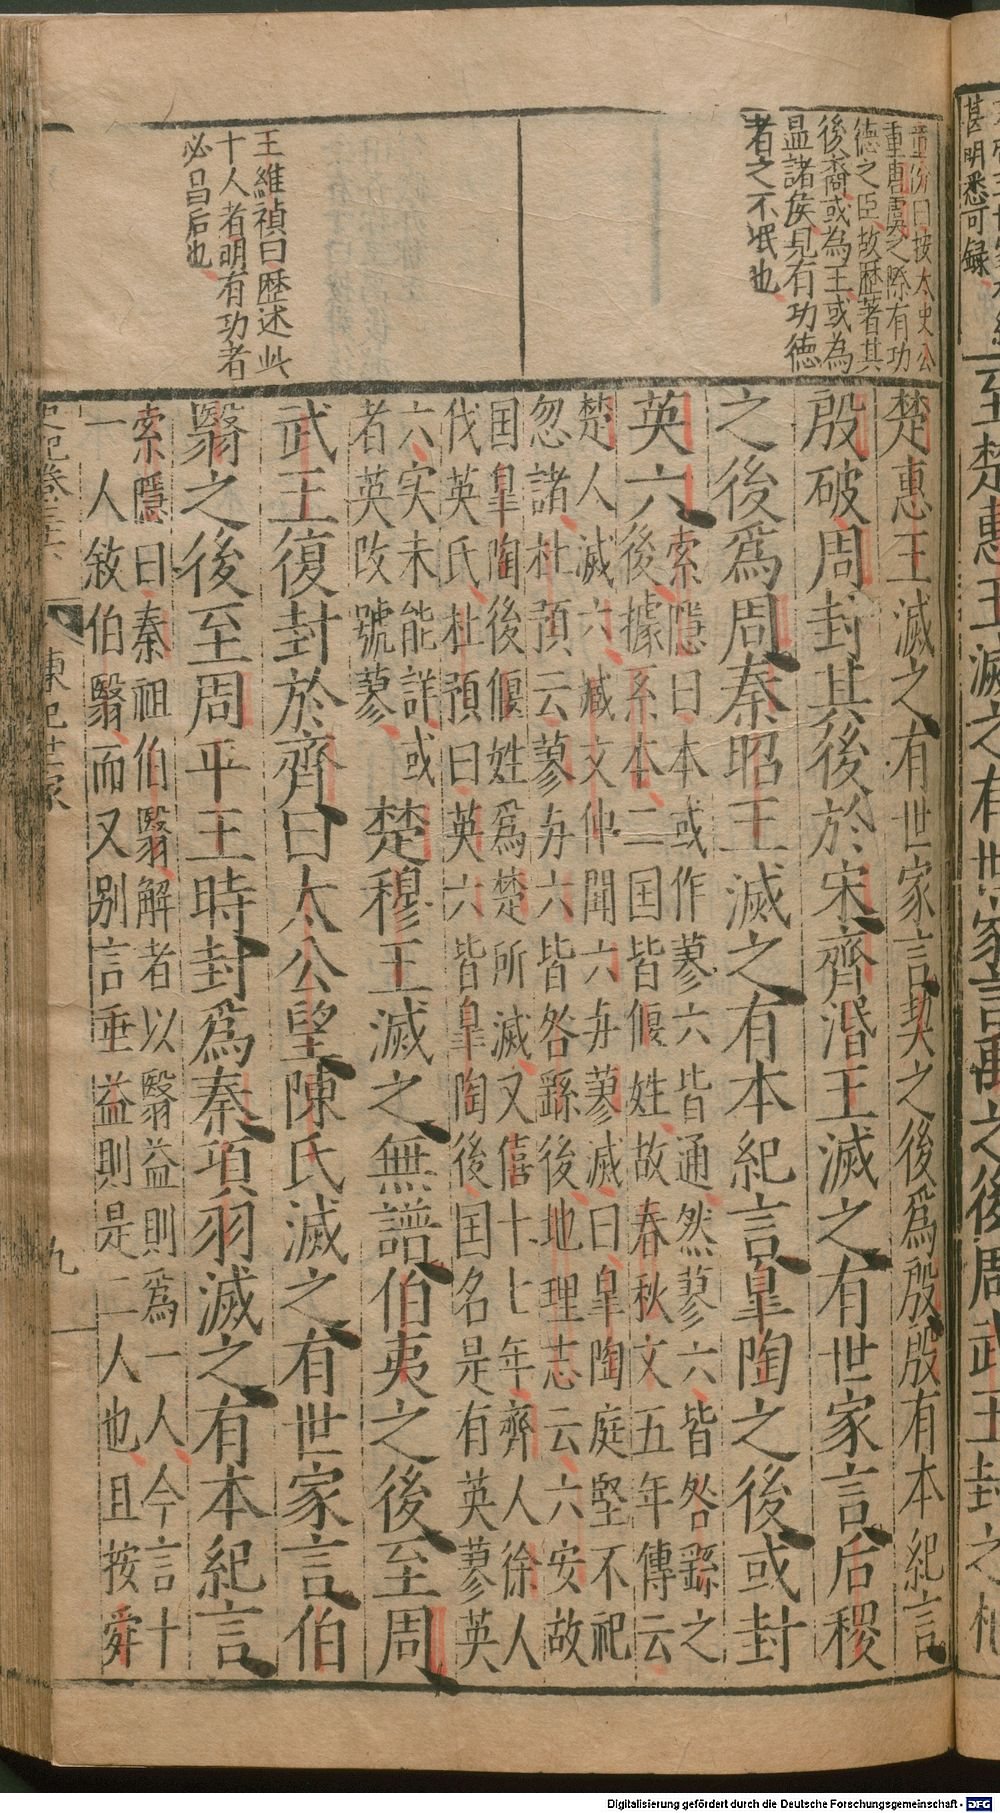 董份曰按太史公
重唐虞之際有功
德之臣故歷著其
後裔或為王或為
諸矦見有功德
者之不泯也
王維禎曰歷述此
十人者明有功者
必昌后也
楚惠王滅之有世家言契之後爲殷殷有本紀言
殷破周封其後於宋齊湣王滅之有世家言后稷
之後爲周秦昭王滅之有本紀言臯陶之後或封
英六
索隱曰本或作蓼六皆通然蓼六皆咎繇之
後據系本二囯皆偃姓故春秋文五年傳云
楚人滅六臧文仲聞六与蓼滅曰臯陶庭堅不祀
忽諸杜預云蓼与六皆咎繇後地理志云六安故
囯臯陶後偃姓爲楚所滅又僖十七年齊人徐人
伐英氏杜預曰英六皆臯陶後囯名是有英蓼英
六実未能詳或
者英改號蓼
楚穆王滅之無譜伯夷之後至周
武王復封於齊曰太公望陳氏滅之有世家言伯
翳之後至周平王時封爲秦項羽滅之有本紀言
索隱曰秦祖伯翳解者以翳益則爲一人今言十
一人敘伯翳而又别言垂益則是二人也且按舜
史記卷三十六
陳杞世家
九
甚明悉可録
至楚惠王滅之有世家言禹之後周武王封之杞
Digitalisierung gefördert durch die Deutsche Forschungsgemeinschaft - DFG